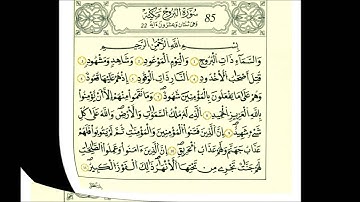 سورة البروج مكية 85
وهي ثنتان وعشرون ءاية 22
بسم الله الرحمن الرحيم
والسماء ذات البروج ١ واليوم الموعود ٢ وشاهد ومشهود ٣
قتل أصحاب الأخدود ٤ النار ذات الوقود ٥ إذ هم عليها قعود ٦
وهم على ما يفعلون بالمؤمنين شهود ٧ وما نقموا منهم إلا أن يؤمنوا
بالله العزيز الحميد ٨ الذي له ملك السموات والأرض والله على كل
شيء شهيد ٩ إن الذين فتنوا المؤمنين والمؤمنات ثم لم يتوبوا فلهم
عذاب جهنم ولهم عذاب الحريق ١٠ إن الذين ءامنوا وعملوا الصالحات
لهم جنات تجري من تحتها الأنهار ذلك الفوز الكبير ١١